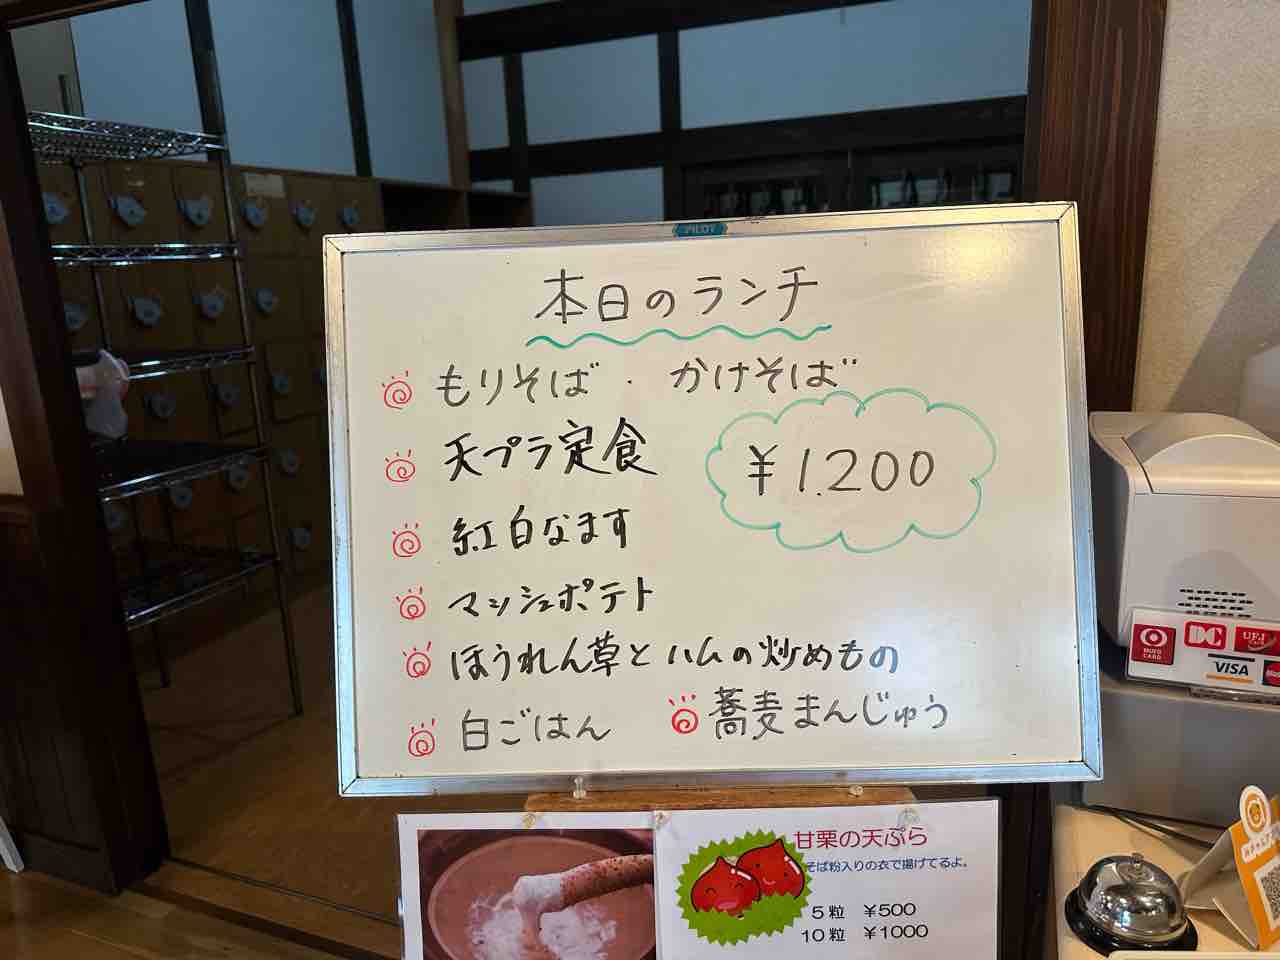 PILOT
本日のランチ
もりそば・かけそば
天プラ定食
¥1.200
紅白なます
マッシュポテト
ほうれん草とハムの炒めもの
白ごはん
蕎麦まんじゅう
甘栗の天ぷら
そば粉入りの衣で揚げてるよ。
5粒 ¥500
10粒 ¥1000
DC
UFJ
VISA